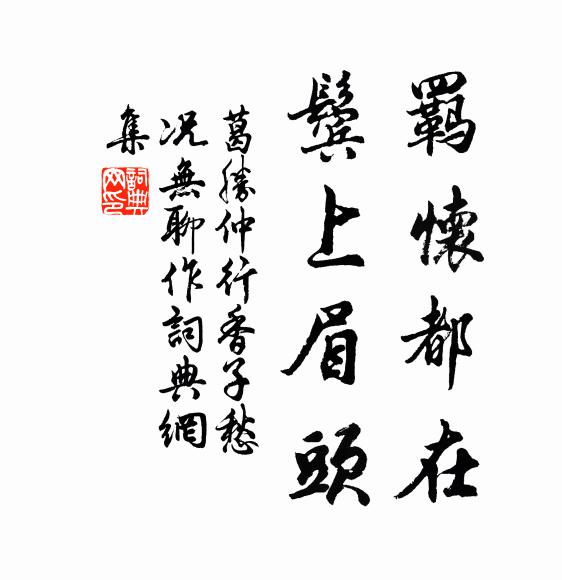 羈懷都在
鬢上眉頭
葛勝仲行香子愁
况無聊作詞典網
集
詞典網印